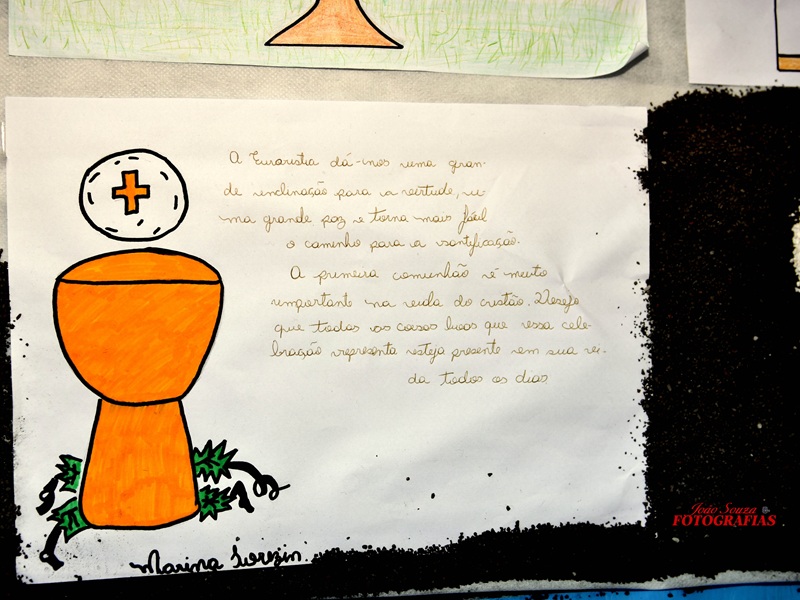 A Eucaristia dá-nos uma gran-
de inclinação para a virtude, u-
ma grande paz e torna mais fácil
o caminho para a santificação.
A primeira comunhão é muito
importante na vida do cristão. Desejo
que todas as coisas boas que essa cele-
bração representa esteja presente em sua vi-
da todos os dias
Marina
João Souza
FOTOGRAFIAS